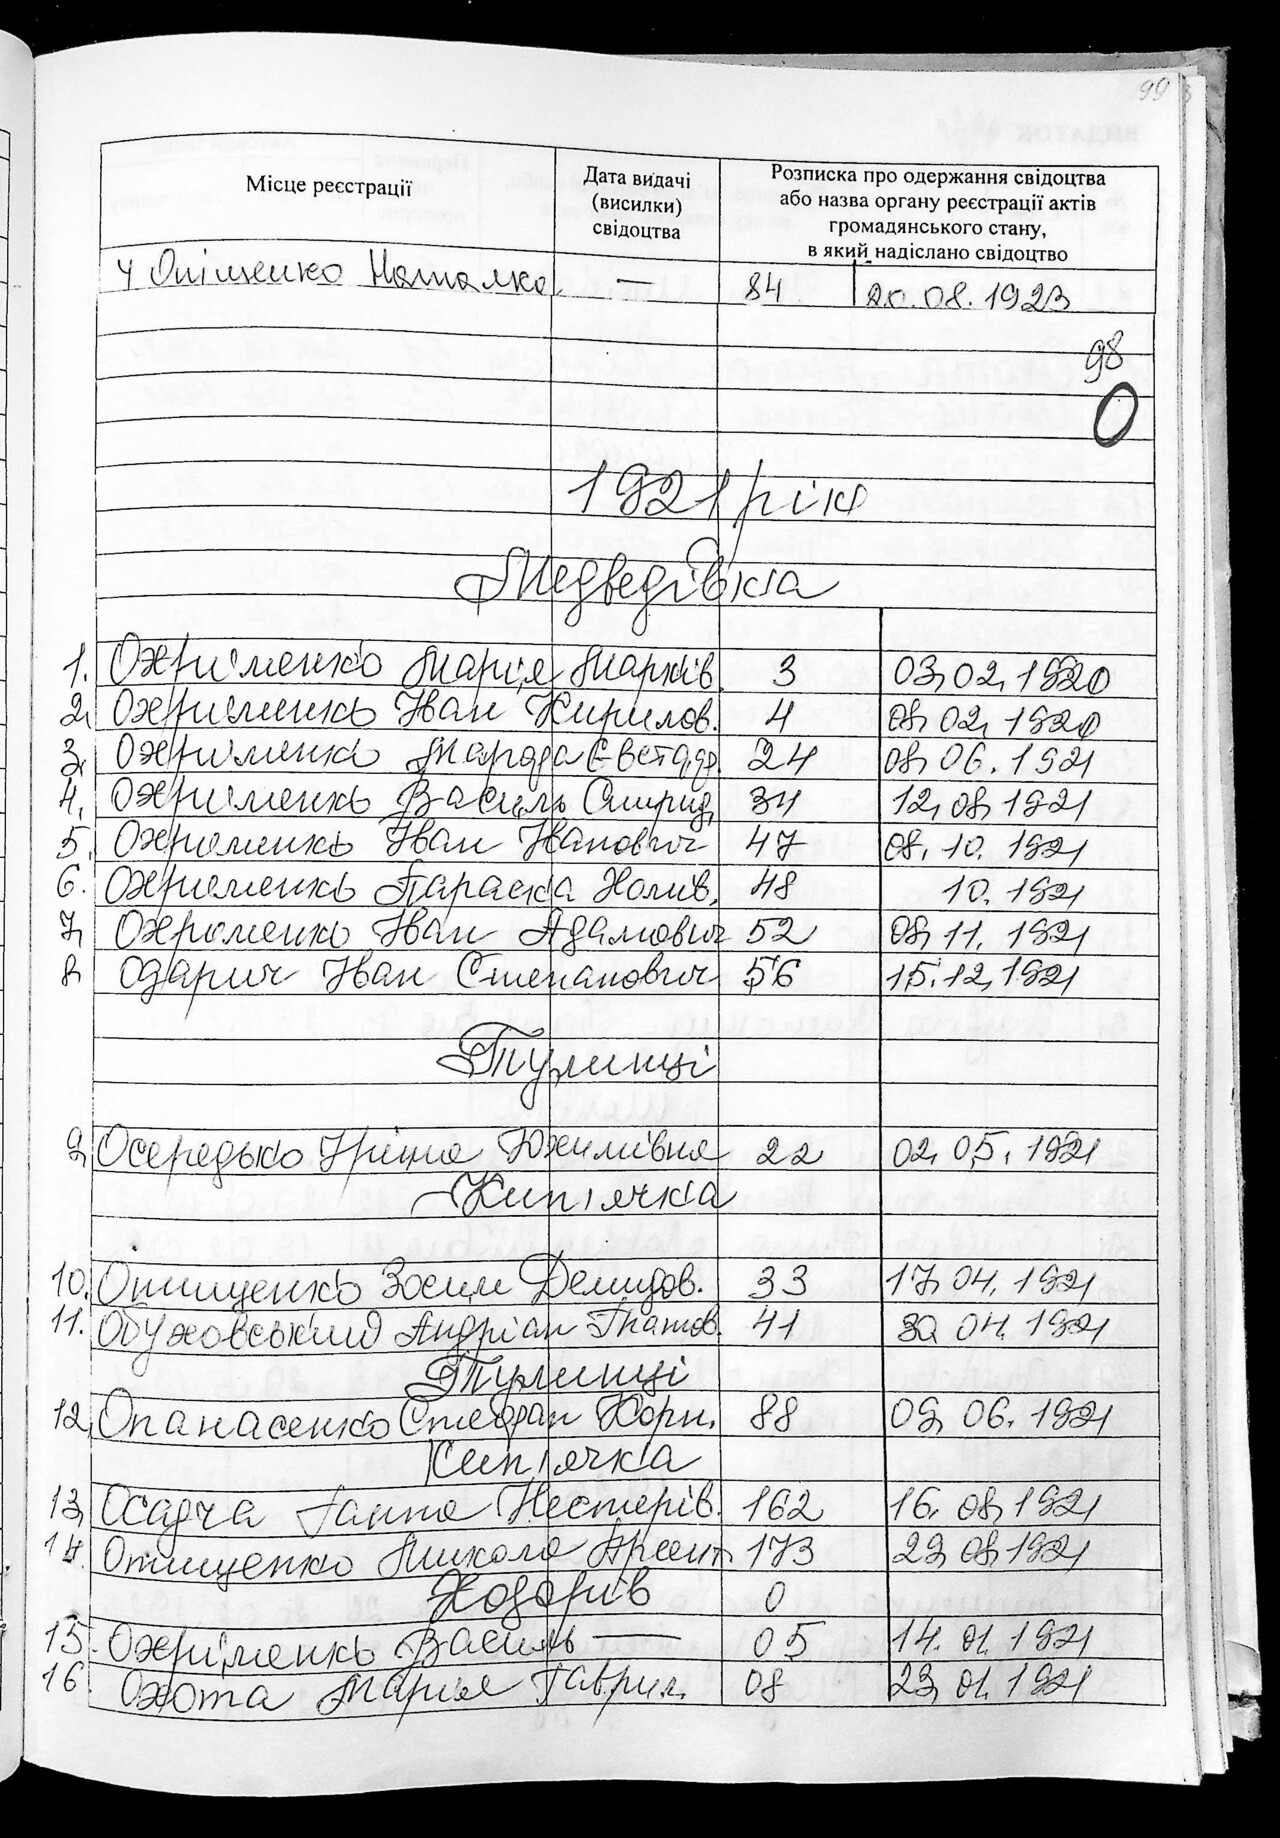 99
Місце реєстрації
Дата видачі
(висилки)
свідоцтва
Розписка про одержання свідоцтва
або назва органу реєстрації актів
громадянського стану,
в який надіслано свідоцтво
4 Опіщенко Наталка - 84 20.08.1923
98
О
1921 рік
Медведівка
1. Охріменко Марія Марків. 3 03.02.1920
2. Охріменко Іван Кирилов. 4 08.02.1920
3. Охріменко 24 08.06.1921
4. Охріменко Василь Спирид. 34 12.08.1921
5. Охріменко Іван Іванович 47 08.10.1921
6. Охріменко Параска 48 10.1921
7. Охріменко Іван Адамович 52 08.11.1921
8 Одарич Іван Степанович 56 15.12.1921
Тулинці
9. Осередько Юхимівна 22 02.05.1921
Кип'ячка
10. Опищенко Зосим Демидов. 33 17.04.1921
11. Обуховський Андріан Гнатов. 41 30.04.1921
Тулинці
12. Опанасенко Стефан Корн. 88 09.06.1921
Кип'ячка
13. Осадча Ганна Нестерів. 162 16.08.1921
14. Опищенко Микола Арсент 173 29.08.1921
Ходорів 0
15. Охріменко Василь — 05 14.01.1921
16. Охота Марія Гаврил. 08 23.01.1921